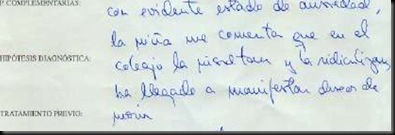 P. COMPLEMENTARIAS:
con evidente estado de ansiedad,
la niña me comenta que en el
HIPÓTESIS DIAGNÓSTICA:
colegio la insultan y la ridiculizan,
ha llegado a manifestar deseos de
TRATAMIENTO PREVIO:
morir